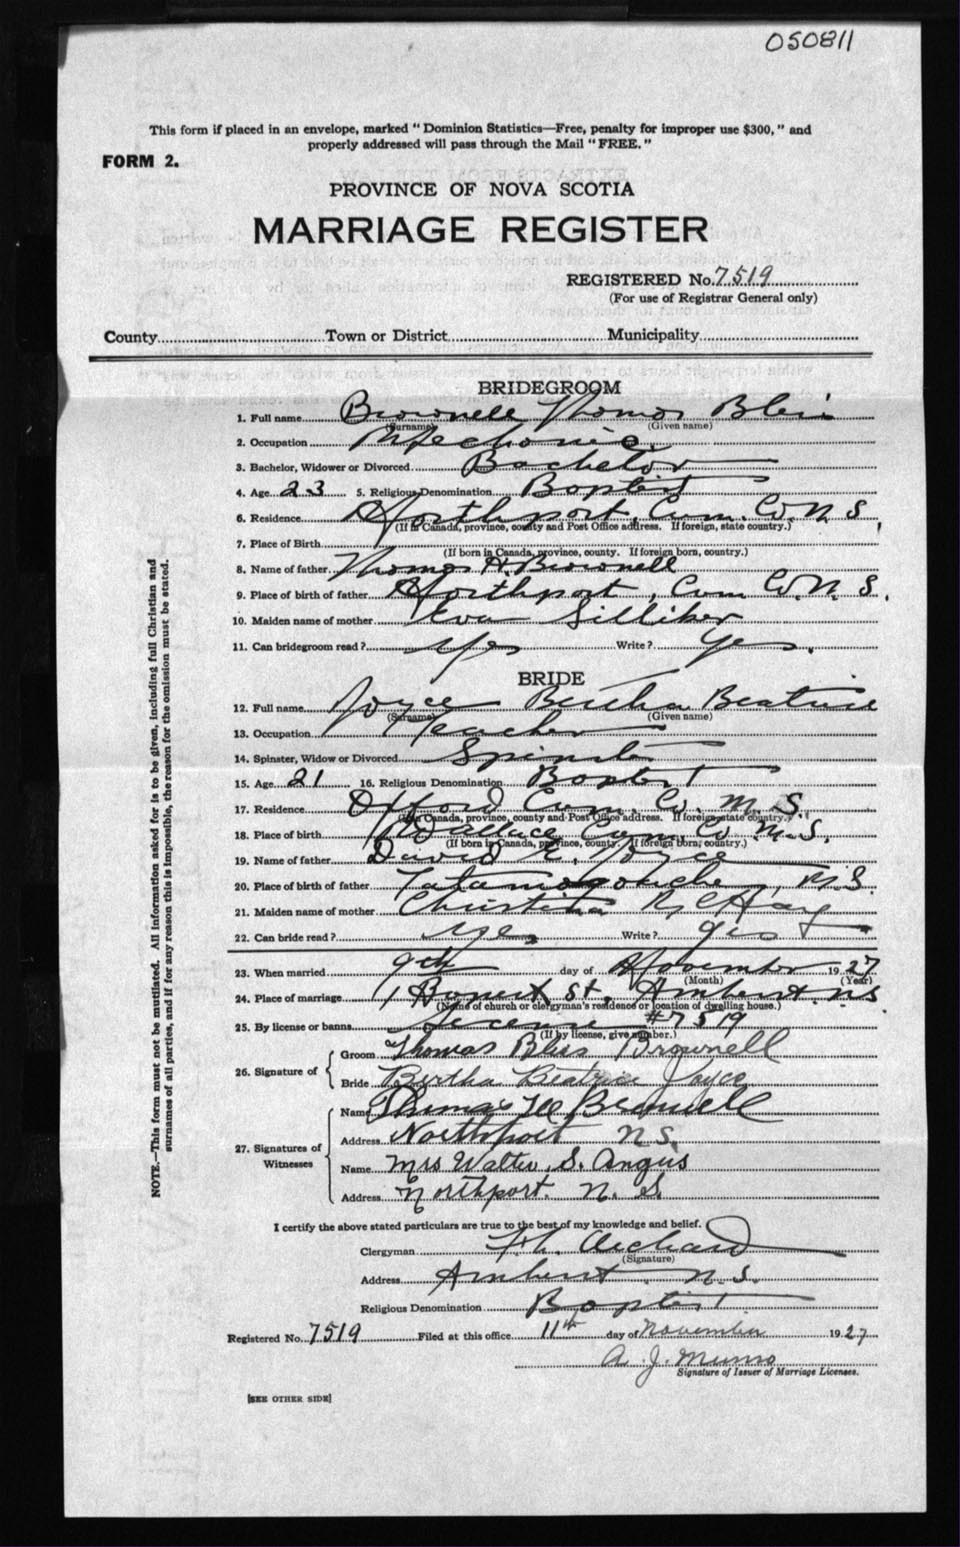 050811
This form if placed in an envelope, marked "Dominion Statistics—Free, penalty for improper use $300," and
properly addressed will pass through the Mail "FREE."
FORM 2.
PROVINCE OF NOVA SCOTIA
MARRIAGE REGISTER
REGISTERED No. 7519
(For use of Registrar General only)
County Town or District Municipality
BRIDEGROOM
1. Full name Brownell Thomas Bliss
(Surname) (Given name)
2. Occupation Mechanic
3. Bachelor, Widower or Divorced Bachelor
4. Age 23 5. Religious Denomination Baptist
6. Residence Northport, Cum. Co. N.S.
(If in Canada, province, county and Post Office address. If foreign, state country.)
7. Place of Birth
(If born in Canada, province, county. If foreign born, country.)
8. Name of father Thomas H. Brownell
9. Place of birth of father Northport, Cum Co. N.S.
10. Maiden name of mother Eva Silliker
11. Can bridegroom read? Yes Write? Yes.
BRIDE
12. Full name Joyce Bertha Beatrice
(Surname) (Given name)
13. Occupation Teacher
14. Spinster, Widow or Divorced Spinster
15. Age 21 16. Religious Denomination Baptist
17. Residence Oxford Cum. Co. N.S.
(If in Canada, province, county and Post Office address. If foreign state country.)
18. Place of birth Wallace Cum. Co N.S.
(If born in Canada, province, county. If foreign born; country.)
19. Name of father David E. Joyce
20. Place of birth of father Tatamagouche, N.S.
21. Maiden name of mother Christina
22. Can bride read? Yes Write? Yes
23. When married 9th day of November 1927
(Month) (Year)
24. Place of marriage St, Amherst. N.S
(Name of church or clergyman's residence or location of dwelling house.)
25. By license or banns License #7519
(If by license, give number.)
26. Signature of Groom Thomas Bliss Brownell
Bride Bertha Beatrice Joyce
27. Signatures of Witnesses Name Thomas Brownell
Address Northport N.S.
Name Mrs Walter S. Angus
Address Northport. N. S.
I certify the above stated particulars are true to the best of my knowledge and belief.
Clergyman Archard
(Signature)
Address Amherst N.S.
Religious Denomination Baptist
Registered No. 7519 Filed at this office 11th day of November 1927
A. J. Munro
Signature of Issuer of Marriage Licenses.
[SEE OTHER SIDE]
NOTE.—This form must not be mutilated. All information asked for is to be given, including full Christian and
surnames of all parties, and if for any reason this is impossible, the reason for the omission must be stated.